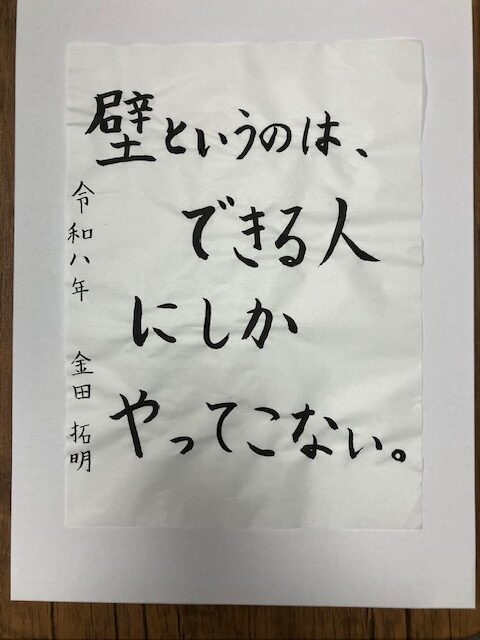 壁というのは、
できる人
にしか
やってこない。
令和八年　金田 拓明